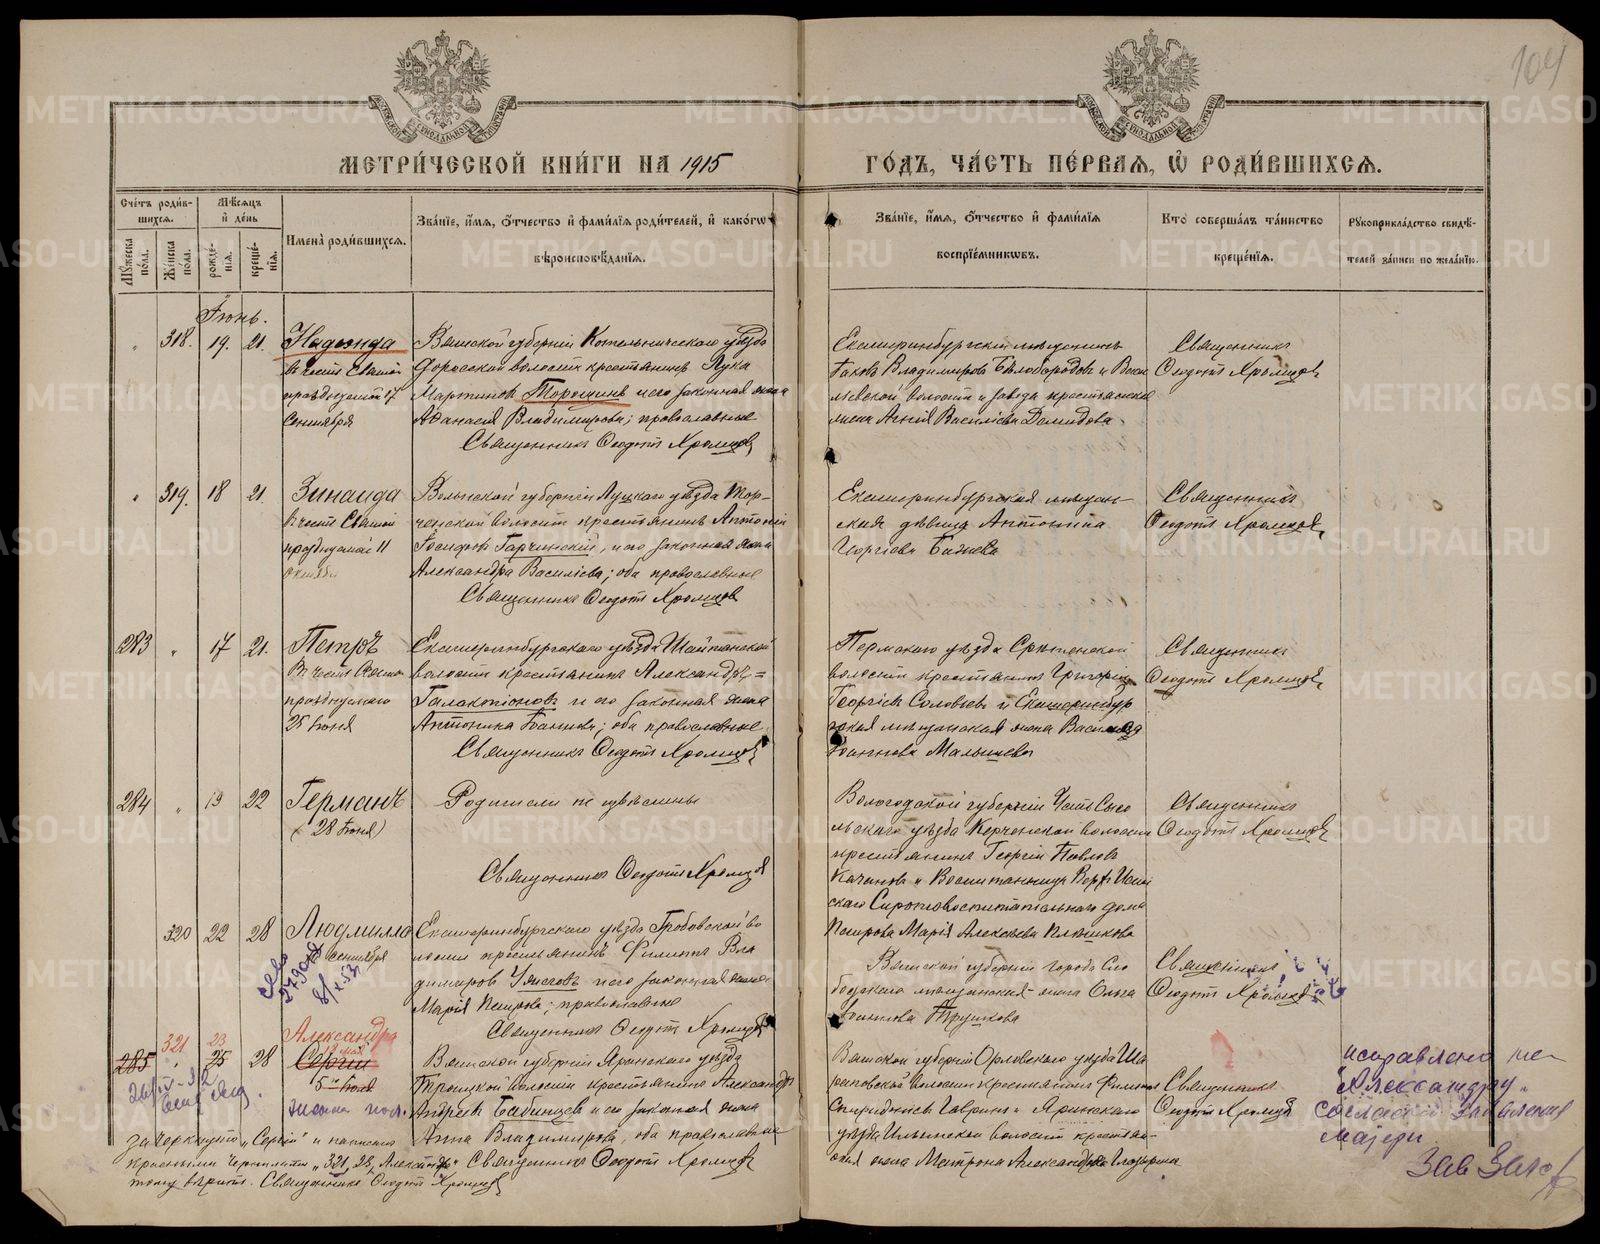 104
МЕТРИ́ЧЕСКОЙ КНИ́ГИ НА 1915
ГО́ДЪ, ЧА́СТЬ ПЕ́РВАЯ, Ѽ РОДИ́ВШИХСЯ.
Сче́тъ роди́в-
шихся.
Мѣ́сяцъ
и҆ де́нь
Мꙋ́жеска по́ла.
Же́нска по́ла.
рожде́-
нїѧ.
креще́-
нїѧ.
И҆мена̀ роди́вшихся.
Зва́нїе, и҆́мѧ, ѻ҆́тчество и҆ фами́лїѧ роди́телей, и҆ како́гѡ
вѣроисповѣ́данїѧ.
Зва́нїе, и҆́мѧ, ѻ҆́тчество и҆ фами́лїѧ
воспрїе́мникѡвъ.
Кто̀ соверша́лъ та́инство
креще́нїѧ.
Рꙋкоприкла́дство свидѣ́-
телей за́писи по жела́нїю.
Іюнь.
318. 19. 21. Надежда
въ честь Святой
празднуемой 17
Сентября
Вятской губерніи Котельническаго уѣзда
волости крестьянинъ Лука
Мартиновъ Торощинъ и его законная жена
Аѳанасія Владимірова; православные
Священникъ Ѳеодотъ Хромцовъ
Екатеринбургскій мѣщанинъ
Іаковъ Владиміровъ Бѣлобородовъ и
волости и завода крестьянская
жена Василіева Демидова
Священникъ
Ѳеодотъ Хромцовъ
319. 18 21. Зинаида
въ честь Святой
празднуемой 11
Октября
Волынской губерніи Луцкаго уѣзда Тор-
чинской волости крестьянинъ Антоній
Іосифовъ Гарчинскій, и его законная жена
Александра Василіева; оба православные
Священникъ Ѳеодотъ Хромцовъ
Екатеринбургская мѣщан-
ская дѣвица Антонина
Георгіева
Священникъ
Ѳеодотъ Хромцовъ
283 17 21. Петръ
въ честь Святого
празднуемаго
25 Іюня
Екатеринбургскаго уѣзда Шайтанской
волости крестьянинъ Александръ
Галактіоновъ и его законная жена
Антонина Іоаннова; оба православные
Священникъ Ѳеодотъ Хромцовъ
Пермскаго уѣзда Срѣтенской
волости крестьянинъ Григорій
Георгіевъ Соловьевъ и Екатеринбург
ская мѣщанская жена Василисса
Іоаннова Малышева
Священникъ
Ѳеодотъ Хромцовъ
284 19 22 Германъ
(28 Іюня)
Родители не извѣстны
Священникъ Ѳеодотъ Хромцов
Вологодской губерніи Усть Сысо
льскаго уѣзда Керченской волости
крестьянинъ Георгій Павловъ
Качановъ и Воспитанница Верх Исет
скаго Сиропвоспитательнаго дома
Петрова Марія Алексѣева Плюшкова
Священникъ
Ѳеодотъ Хромцовъ
320 22 28 Людмилла
Сентября
Екатеринбургскаго уѣзда Гробовской во
лости крестьянинъ Филиппъ Вла
диміровъ и его законная жена
Марія Петрова; православные
Священникъ Ѳеодотъ Хромцовъ
Вятской губерніи города Сло
бодского мѣщанская жена Ольга
Іоаннова Трушкова
Священникъ
Ѳеодотъ Хромцов
321 23 Александра
285 25 28 Сергій
5 Іюля
Вятской губерніи Яранскаго уѣзда
Троицкой волости крестьянинъ Александръ
Андреевъ Бабинцев и его законная жена
Анна Владимірова, оба православные
Священникъ Ѳеодотъ Хромцовъ
Вятской губерніи Орловскаго уѣзда
волости крестьянинъ Филиппъ
Спиридоновъ Гавринъ и Яранскаго
уѣзда Ильинской волости крестьян-
ская жена Матрона Александрова Глазырина
Священникъ
Ѳеодотъ Хромцов
исправлено на
"Александру"
согласно заявления
матери
Зав Загс
зачеркнуто "Сергій" и написано
красными чернилами "321, 23, Александра"
тому вѣрить. Священникъ Ѳеодотъ Хромцовъ
METRIKI.GASO-URAL.RU